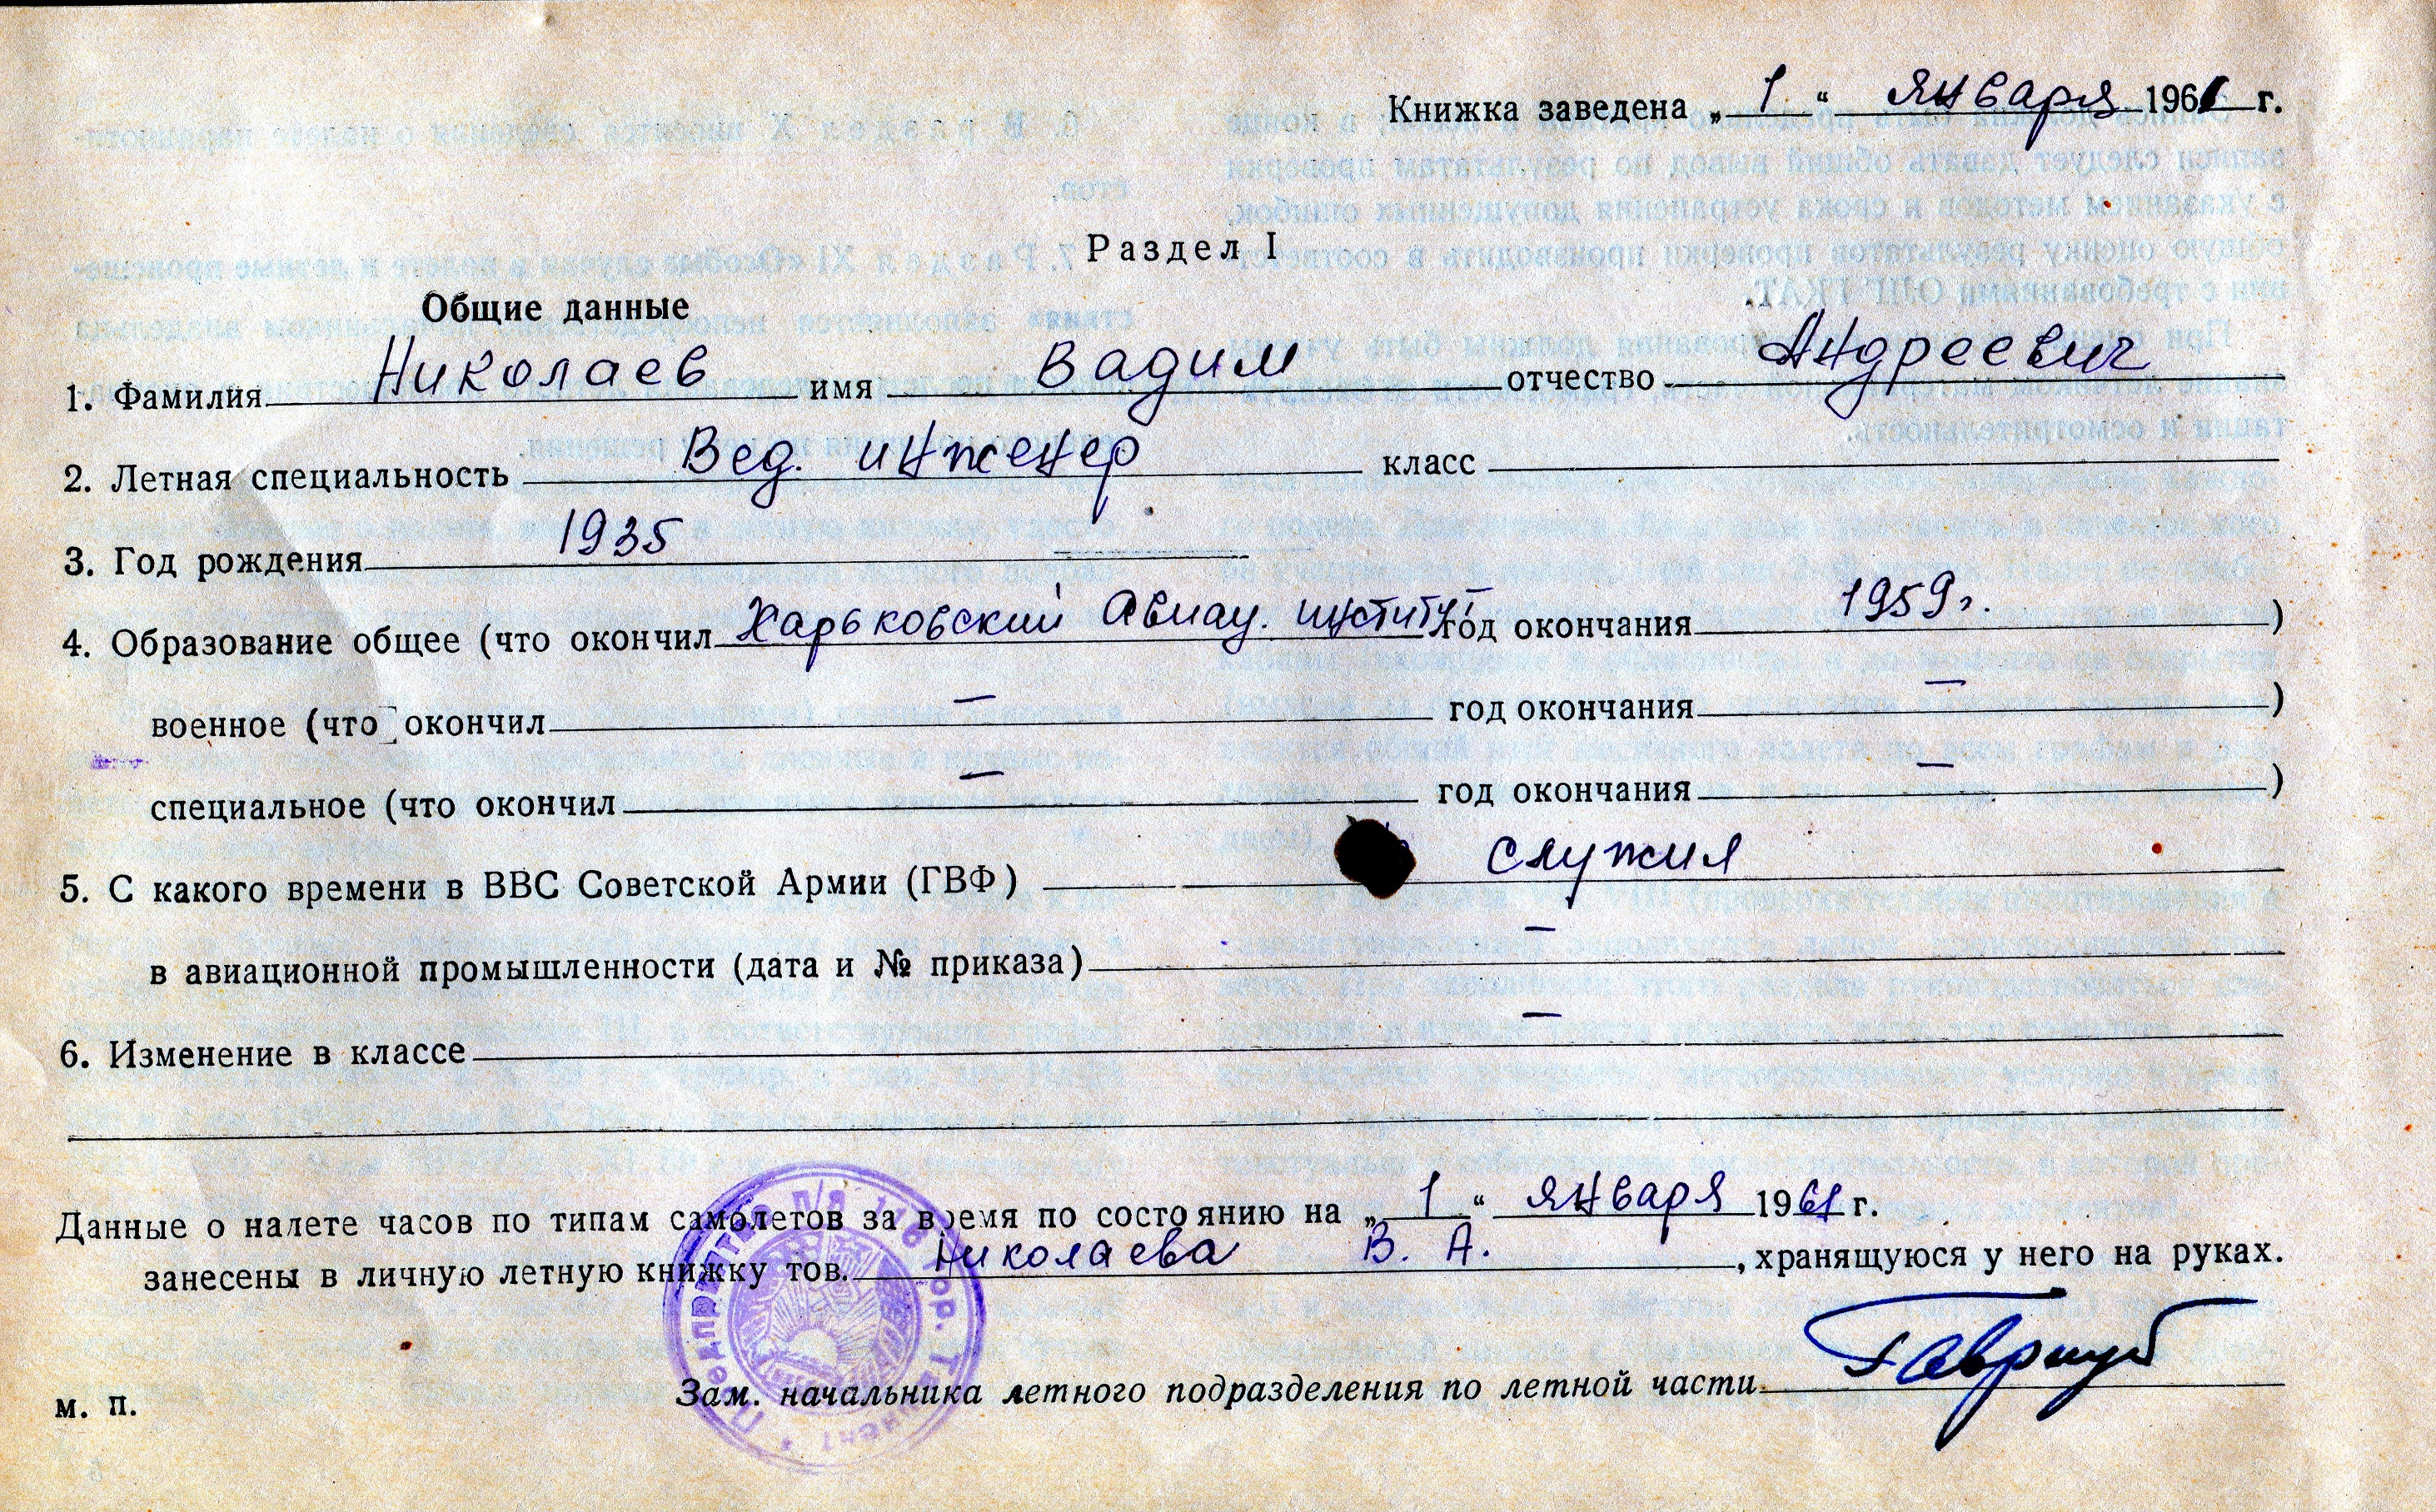 Книжка заведена „ 1 “ января 1961 г.
Раздел I
Общие данные
1. Фамилия Николаев имя Вадим отчество Андреевич
2. Летная специальность Вед. инженер класс
3. Год рождения 1935
4. Образование общее (что окончил Харьковский Авиац. институт год окончания 1959 г. )
военное (что окончил — год окончания — )
специальное (что окончил — год окончания — )
5. С какого времени в ВВС Советской Армии (ГВФ) служил
в авиационной промышленности (дата и № приказа) —
6. Изменение в классе —
Данные о налете часов по типам самолетов за время по состоянию на „ 1 “ января 1961 г.
занесены в личную летную книжку тов. Николаева В. А. , хранящуюся у него на руках.
м. п.
Зам. начальника летного подразделения по летной части
Предприятие П/Я